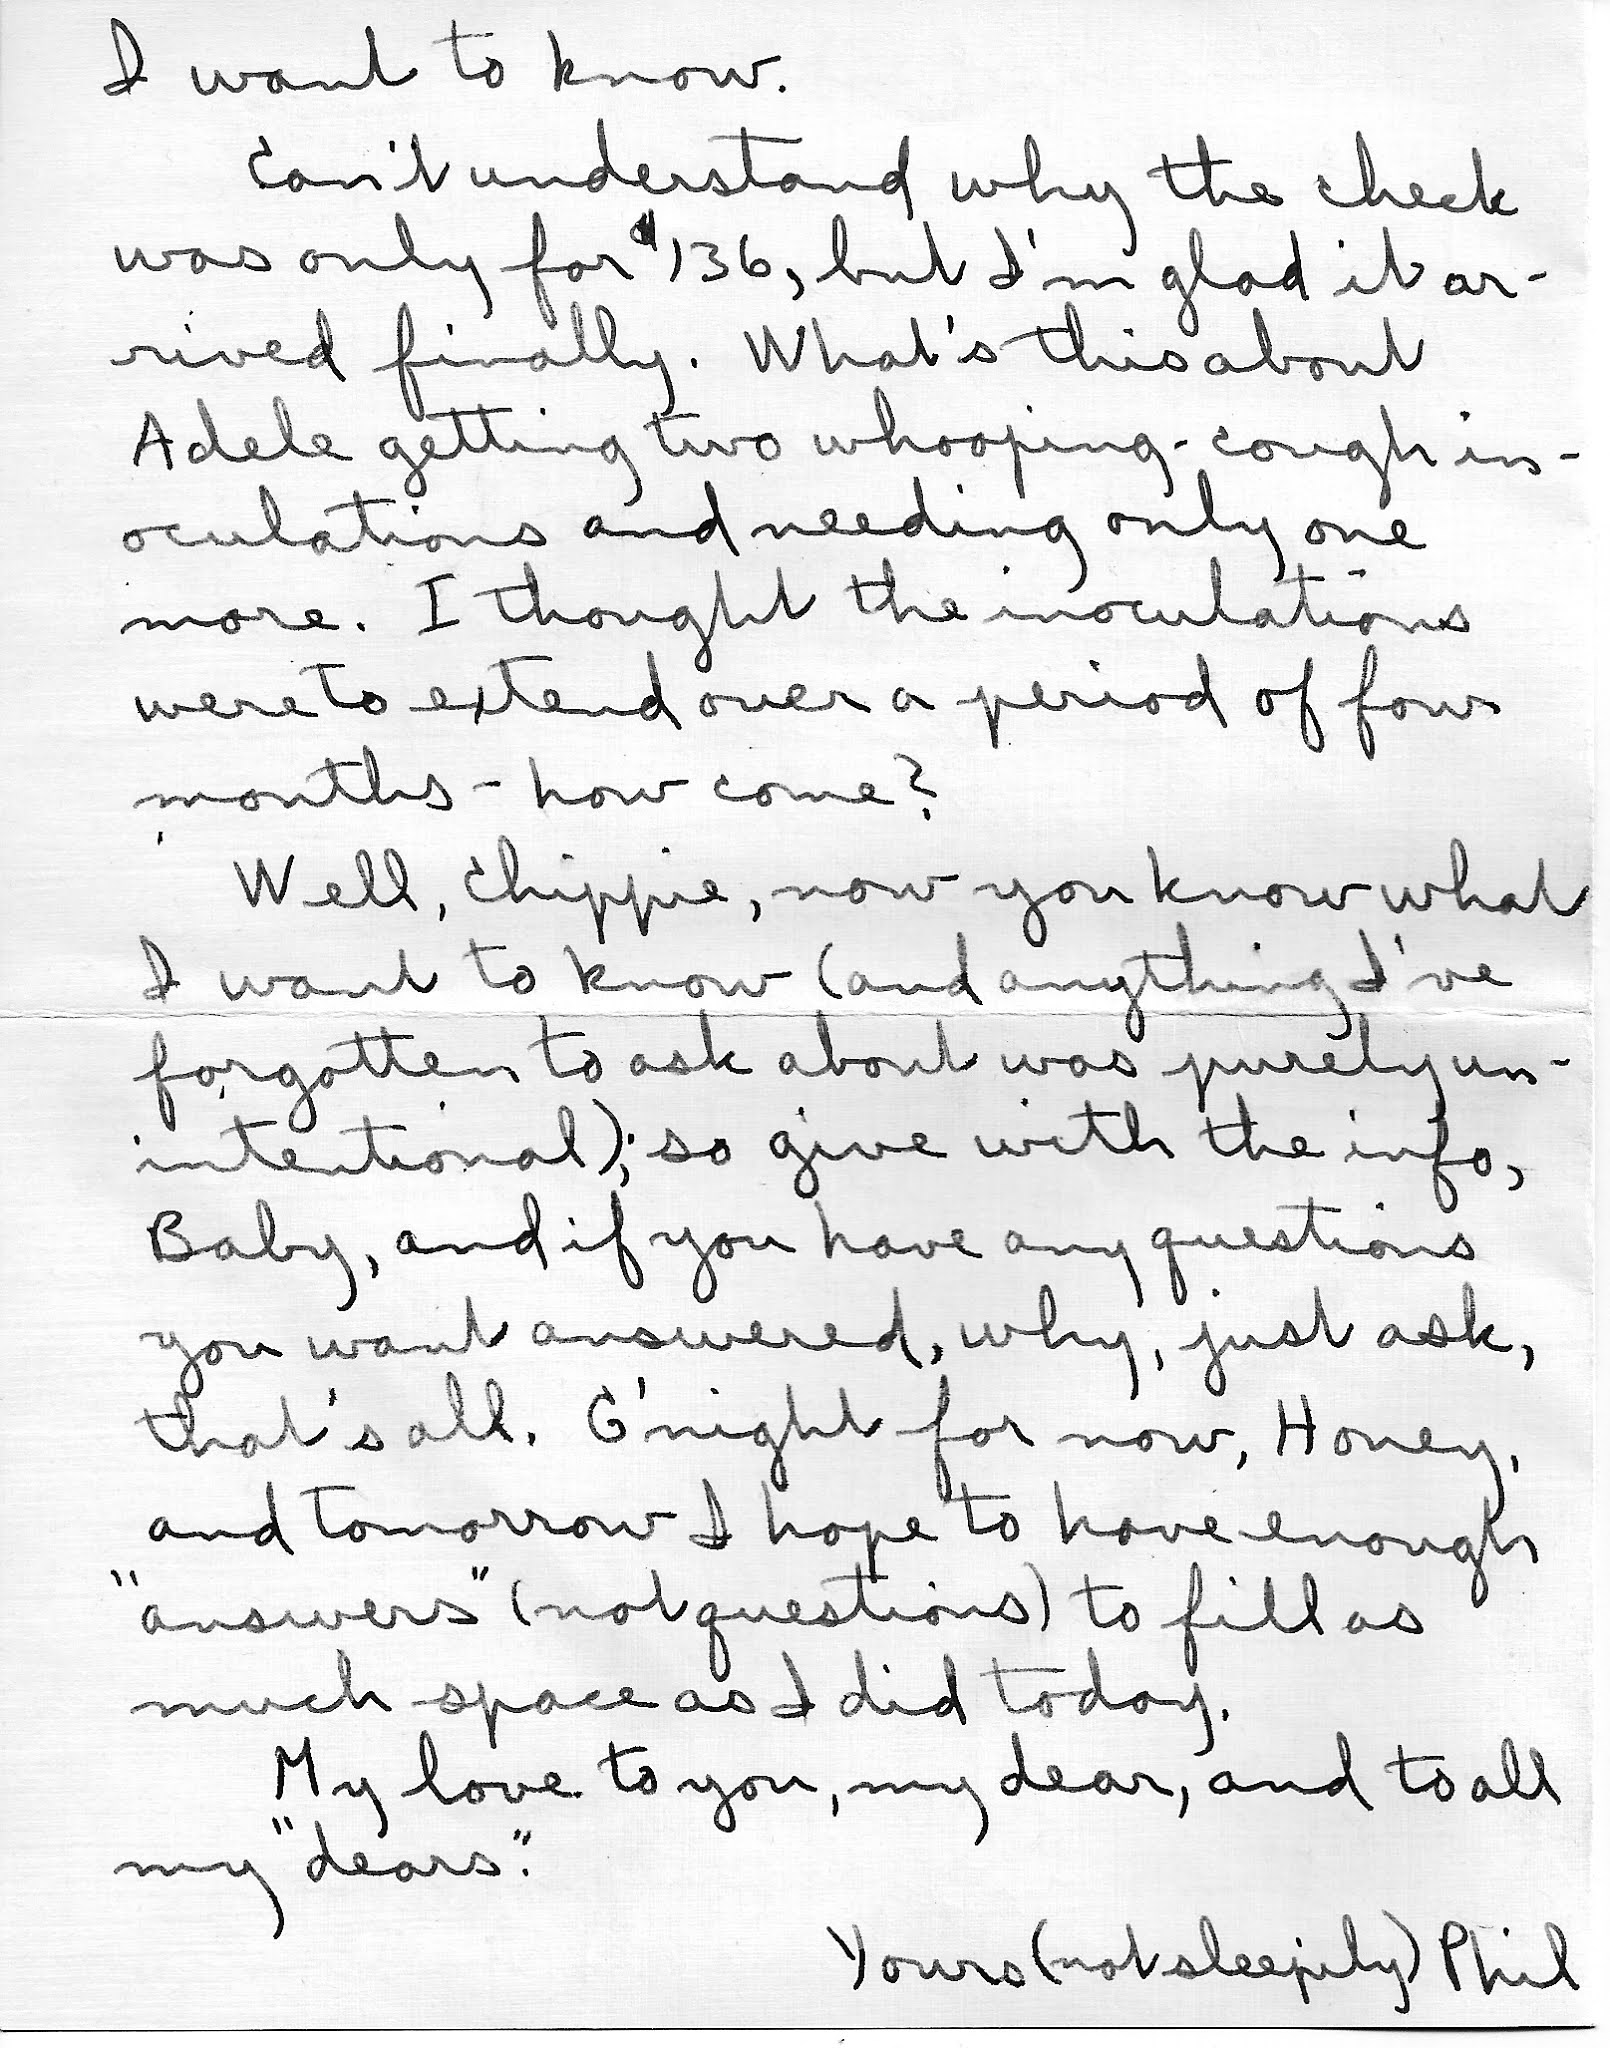 I want to know.
Can't understand why the check
was only for $136, but I'm glad it ar-
rived finally. What's this about
Adele getting two whooping-cough in-
oculations and needing only one
more. I thought the inoculations
were to extend over a period of four
months - how come?
Well, Chippie, now you know what
I want to know (and anything I've
forgotten to ask about was purely un-
intentional); so give with the info,
Baby, and if you have any questions
you want answered, why, just ask,
that's all. G'night for now, Honey,
and tomorrow I hope to have enough
"answers" (not questions) to fill as
much space as I did today.
My love to you, my dear, and to all
my "dears".
Yours (not sleepily) Phil